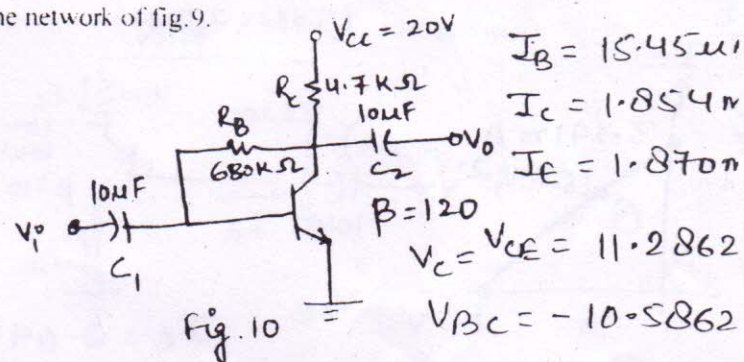 ne network of fig.9.
VCC = 20V
RC 4.7KΩ
RB
680KΩ
10μF
C2
Vo
10μF
Vi
C1
β=120
Fig. 10
IB = 15.45μ
IC = 1.854
IE = 1.870
VC = VCE = 11.2862
VBC = -10.5862